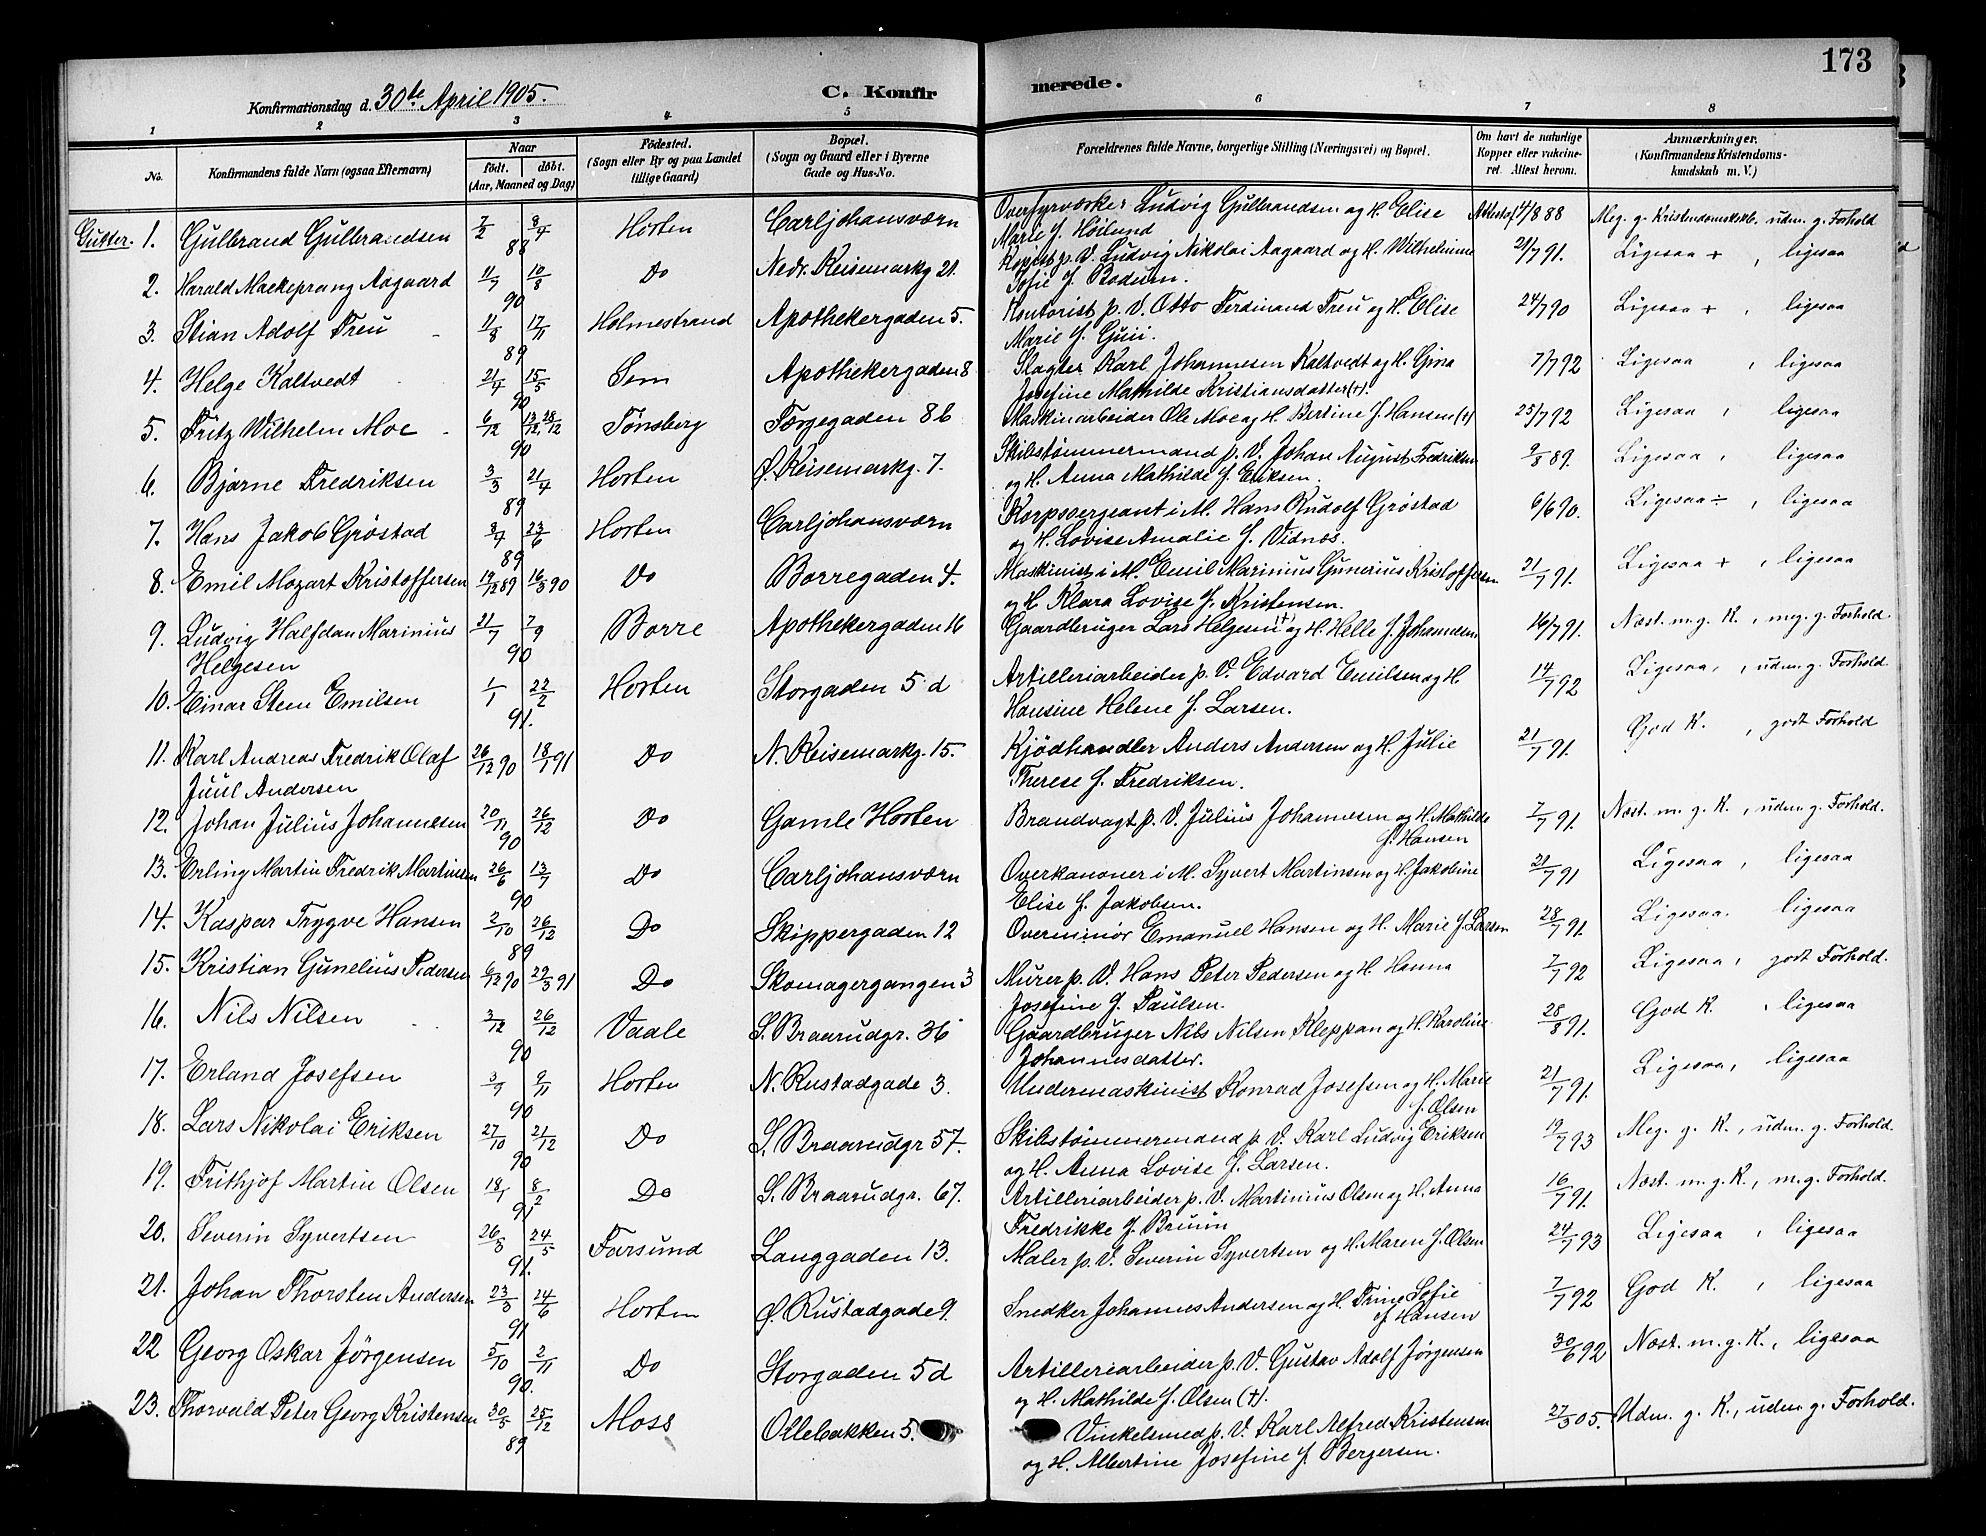 173
C. Konfirmerede.
Konfirmationsdag d. 30te April 1905.
1 2 3 4 5 6 7 8
No. Konfirmandens fulde Navn (ogsaa Efternavn) Naar født. døbt. (Aar, Maaned og Dag) Fødested. (Sogn eller By og paa Landet tillige Gaard) Bopæl. (Sogn og Gaard eller i Byerne Gade og Hus-No. Forældrenes fulde Navne, borgerlige Stilling (Næringsvei) og Bopæl. Om havt de naturlige Kopper eller vakcineret. Attest herom. Anmærkninger. (Konfirmandens Kristendomskundskab m. V.)
Gutter. 1. Gulbrand Gulbrandsen 7/2 8/4 88 Horten Carljohansværn Overfyrværker Ludvig Gulbrandsen og H. Elise
Marie f. Höilund Attest af 4/8 88 Meg. g. Kristendomskdsk. udm. g. Forhold
2. Harald Mackeprang Aagaard 11/7 10/8 90 Do Nedr. Keisemarkg 21. Kopist p. V. Ludvig Nikolai Aagaard og H. Wilhelmine
Sofie f. Bodum. 21/7 91. Ligesaa + , ligesaa
3. Stian Adolf Treu 11/8 17/11 89 Holmestrand Apothekergaden 5. Kontorist p. V. Otto Ferdinand Treu og H. Elise
Marie f. 24/7 90 Ligesaa + , ligesaa
4. Helge Kaltvedt 21/4 15/5 90 Sem Apothekergaden 8 Slagter Karl Johannesen Kaltvedt og H. Gina
Josefine Mathilde Kristiansdatter (†). 7/7 92 Ligesaa , ligesaa
5. Fritz Wilhelm Moe 6/12 13/12 28/12 90 Tönsberg Torgegaden 8b Maskinarbeider Ole Moe og H. Bertine f. Hansen (†) 25/7 92 Ligesaa , ligesaa
6. Bjarne Fredriksen 3/3 21/4 89 Horten Ø. Keisemarkg. 7. Skibstømmermand p. V. Johan August Fredriksen
og H. Anna Mathilde f. Eriksen. 9/8 89. Ligesaa , ligesaa
7. Hans Jakob Grøstad 3/4 23/6 89 Horten Carljohansværn Korpssergeant i M. Hans Rudolf Grøstad
og H. Lovise Amalie f. Vidnes. 6/6 90. Ligesaa ÷ , ligesaa
8. Emil Mozart Kristoffersen 19/12 89 16/3 90 Do Borregaden 4. Maskinist i M. Emil Marinius Gunerius Kristoffersen
og H Klara Lovise f. Kristensen. 21/7 91. Ligesaa + , ligesaa
9. Ludvig Halfdan Marinius 21/7 7/9 90 Borre Apothekergaden 16 Gaardbruger Lars Helgesen (†) og H. Helle f. Johansen 16/7 91. Næst. m. g. K. , meg. g. Forhold.
Helgesen
10. Einar Steen Emilsen 1/1 22/2 91. Horten Storgaden 5 d Artilleriarbeider p. V. Edvard Emilsen og H
Hansine Helene f. Larsen. 14/7 92 Ligesaa , udm. g. Forhold.
11. Karl Andreas Fredrik Olaf 26/12 90 18/1 91 Do N. Keisemarkg. 15. Kjödhandler Anders Andersen og H. Julie
Juul Andersen Therese f. Fredriksen. 21/7 91. God K. , godt Forhold
12. Johan Julius Johannesen 20/11 26/12 90 Do Gamle Horten Brandvagt p. V. Julius Johannesen og H. Mathilde
f. Hansen 7/7 91. Næst. m. g. K. , udm. g. Forhold.
13. Erling Martin Fredrik Martinsen 26/6 13/7 90 Do Carljohansværn Overkanoner i M. Syvert Martinsen og H. Jakobine
Elise f. Jakobsen. 21/7 91 Ligesaa , ligesaa
14. Kaspar Trygve Hansen 2/10 26/12 89 Do Skippergaden 12 Overminör Emanuel Hansen og H. Marie f. Larsen 28/7 91. Ligesaa , ligesaa
15. Kristian Gunelius Pedersen 6/12 90 29/3 91 Do Skomagergangen 3 Murer p. V. Hans Peter Pedersen og H Hanna
Josefine f. Paulsen. 7/7 92 Ligesaa , godt Forhold.
16. Nils Nilsen 3/12 26/12 90 Vaale S. Braarudgr. 36 Gaardbruger Nils Nilsen Kleppan og H. Karoline
Johannesdatter. 28/8 91. God K. , ligesaa
17. Erland Josefsen 3/9 9/11 90 Horten N. Rustadgade 3. Undermaskinist Konrad Josefsen og H. Marie
f. Olsen 21/7 91. Ligesaa, ligesaa
18. Lars Nikolai Eriksen 27/10 21/12 90 Do S. Braarudgr 57. Skibstømmermand p. V. Karl Ludvig Eriksen
og H. Anna Lovise f. Larsen. 19/7 93 Meg. g. K. , udm. g. Forhold.
19. Frithjof Martin Olsen 18/1 8/2 91 Do S. Braarudgr. 67. Artilleriarbeider p. V. Martinius Olsen og H. Anna
Fredrikke f. Bruun 16/7 91. Næst. m. g. K. , m. g. Forhold.
20. Severin Syvertsen 26/3 24/5 91. Farsund Langgaden 13. Maler p. V. Severin Syvertsen og H. Maren f. Olsen 24/7 93 Ligesaa , ligesaa
21. Johan Thorsten Andersen 23/3 24/6 91 Horten Ø. Rustadgade 9. Snedker Johannes Andersen og H. Trine Sofie
f. Hansen 7/7 92 God K. , ligesaa
22 Georg Oskar Jörgensen 5/10 2/11 90. Do Storgaden 5 d Artilleriarbeider p. V. Gustav Adolf Jörgensen
og H. Mathilde f. Olsen (†). 30/6 92 Næst. m. g. K. , ligesaa
23. Thorvald Peter Georg Kristensen 30/5 25/12 89 Moss Ollebakken 5. Vinkelsmed p. V. Karl Alfred Kristensen
og H. Albertine Josefine f. Bergersen. 27/3 05. Udm. g. K. , udm. g. Forhold.